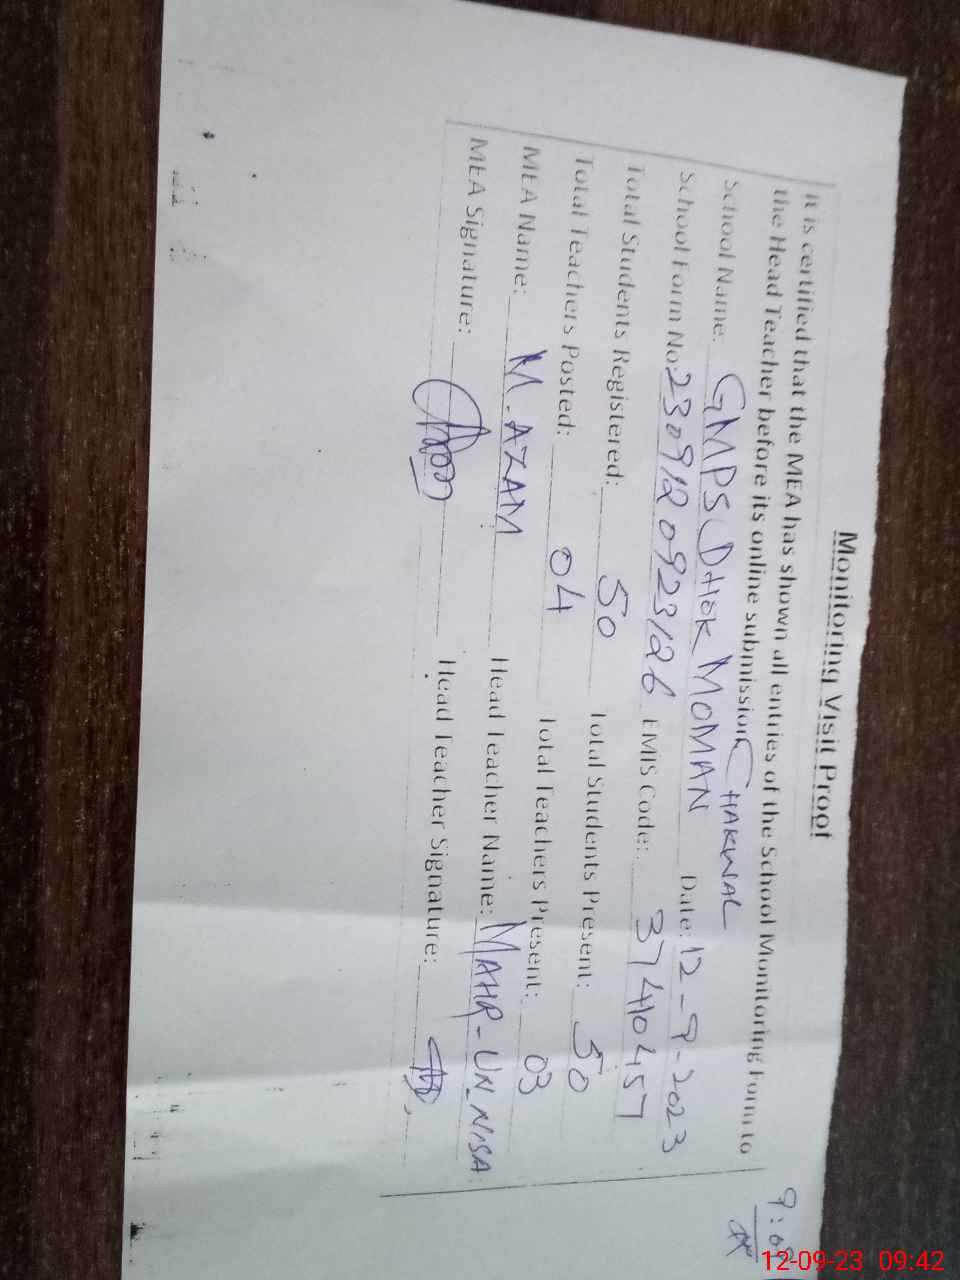 Monitoring Visit Proof
It is certified that the MEA has shown all entries of the School Monitoring Form to
the Head Teacher before its online submission
CHAKWAL
School Name: GMPS DHOK MOMAN Date: 12-9-2023
School Form No: 2309120923126 EMIS Code: 37410457
Total Students Registered: 50 Total Students Present: 50
Total Teachers Posted: 04 Total Teachers Present: 03
MEA Name: M. AZAM Head Teacher Name: MAHR-UN-NISA
MEA Signature: Head Teacher Signature:
12-09-23 09:42